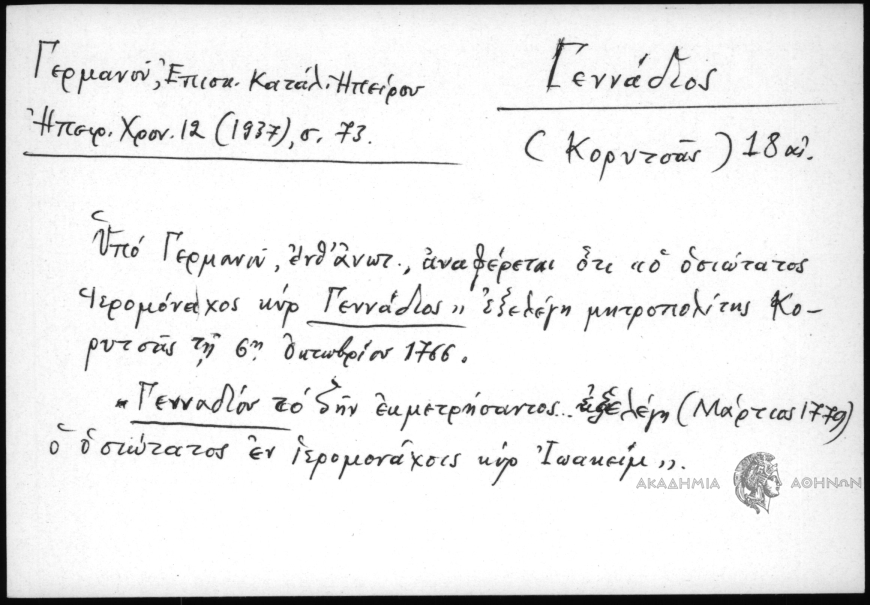 Γερμανοῦ, Ἐπισκ. Κατάλ. Ἠπείρου
Ἠπειρ. Χρον. 12 (1937), σ. 73.
Γεννάδιος
(Κορυτσᾶς) 18 αἰ.
Ὑπό Γερμανοῦ, ἔνθ' ἀνωτ., ἀναφέρεται ὅτι «ὁ ὁσιώτατος
ἱερομόναχος κύρ Γεννάδιος» ἐξελέγη μητροπολίτης Κο-
ρυτσᾶς τῇ 6ῃ Ὀκτωβρίου 1766.
«Γενναδίου τό ζῆν ἐκμετρήσαντος... ἐξελέγη (Μάρτιος 1779)
ὁ ὁσιώτατος ἐν ἱερομονάχοις κύρ Ἰωακείμ».
ΑΚΑΔΗΜΙΑ ΑΘΗΝΩΝ